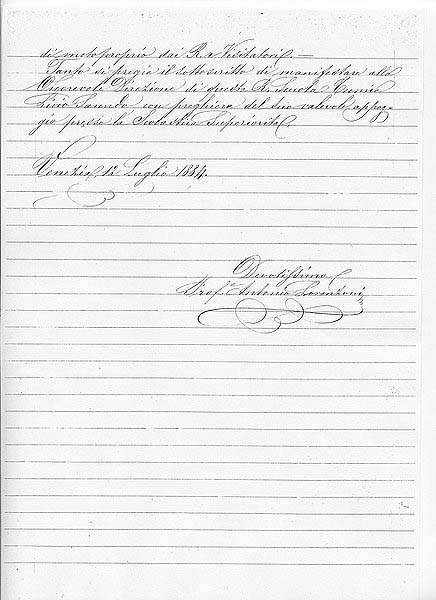 di motoproprio dai R.i Visitatori. —
Tanto si pregia il sottoscritto di manifestare alla
Onorevole Direzione di questa R. Scuola Tecnica
Livio Sanudo con preghiera del suo valevole appog-
gio presso la Scolastica Superiorità.
Venezia, 12 Luglio 1884.
Devotissimo
Prof.e Antonio Lorenzoni